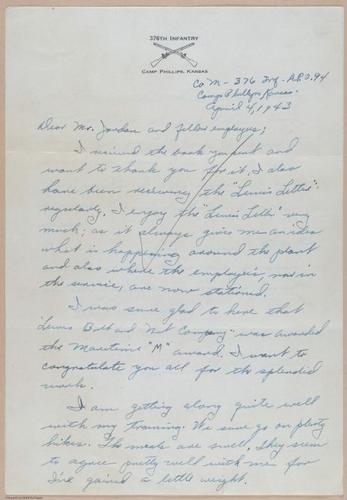 376TH INFANTRY
CAMP PHILLIPS, KANSAS
Co M - 376 Inf - A.P.O. 94
Camp Phillips, Kansas.
April 4, 1943
Dear Mr. Jordan and fellow employees;
I received the book you sent and
want to thank you for it. I also
have been receiving the "Lewis Letter"
regularly. I enjoy the "Lewis Letter" very
much; as it always gives me an idea
what is happening around the plant
and also where the employee's, now in
the service, are now stationed.
I was sure glad to hear that
"Lewis Bolt and Nut Company" was awarded
the Maritime "M" award. I want to
congratulate you all for the splendid
work.
I am getting along quite well
with my training. We sure go on plenty
hikes. The meals are swell. They seem
to agree pretty well with me for
I've gained a little weight.